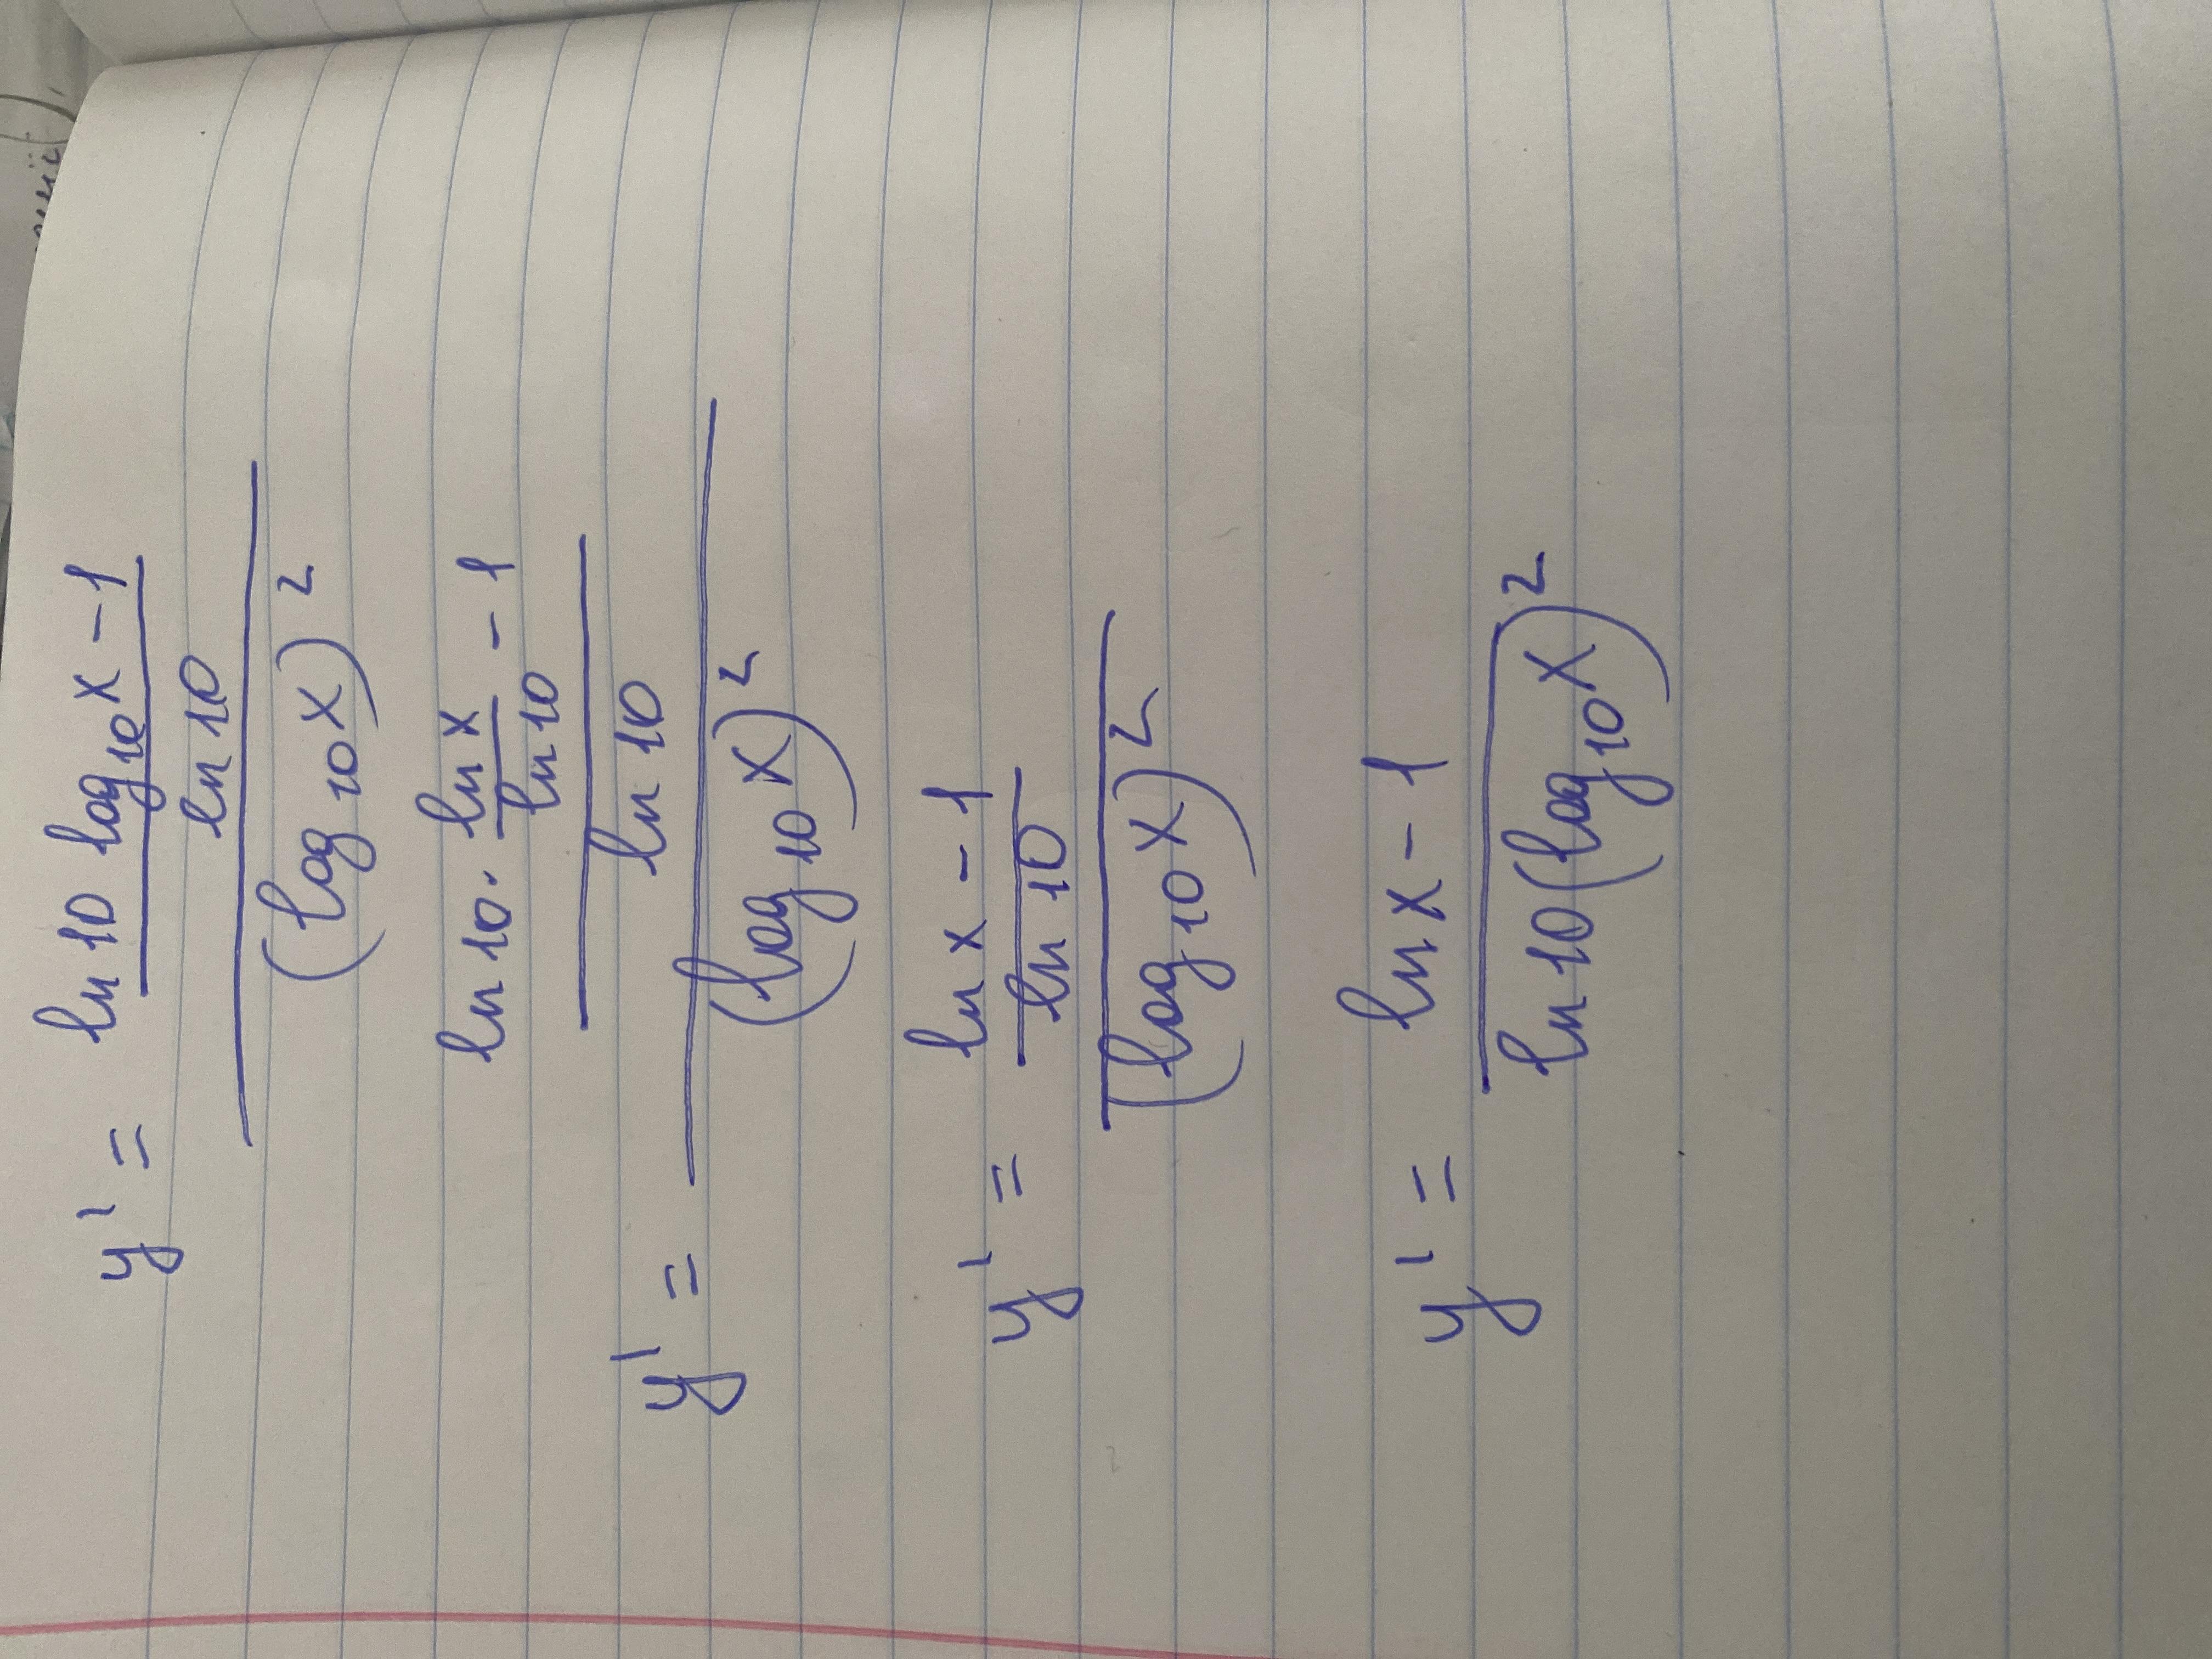 y' = ln 10 log₁₀ x - 1
ln 10
(log₁₀ x)²
y' = ln 10 · ln x / ln 10 - 1
ln 10
(log₁₀ x)²
y' = ln x - 1
ln 10
(log₁₀ x)²
y' = ln x - 1
ln 10 (log₁₀ x)²